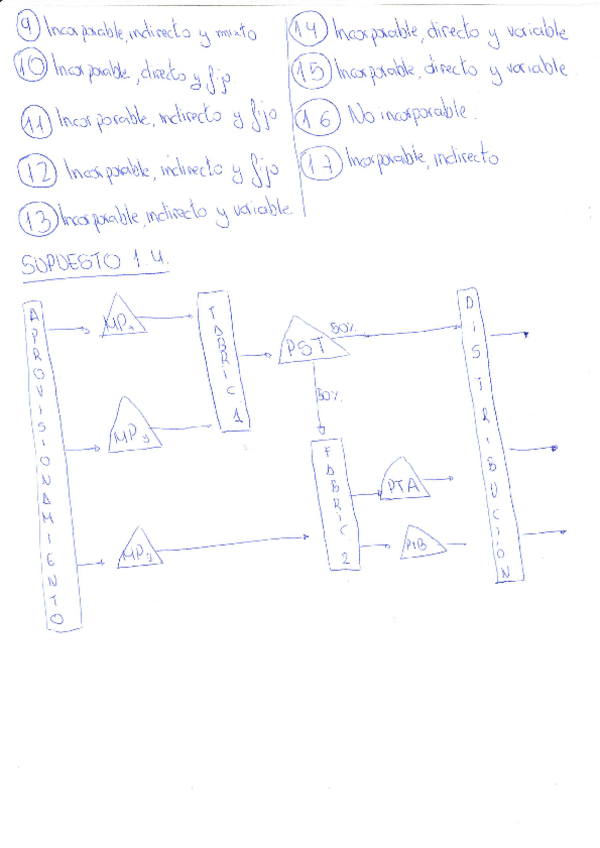 9 Incorporable, indirecto y mixto
10 Incorporable, directo y fijo
11 Incorporable, indirecto y fijo
12 Incorporable, indirecto y fijo
13 Incorporable, indirecto y variable.
14 Incorporable, directo y variable
15 Incorporable, directo y variable
16 No incorporable.
17 Incorporable, indirecto
SUPUESTO 1.4.
APROVISIONAMIENTO
MP1
FABRIC 1
PST
50%
DISTRIBUCION
MP3
50%
FABRIC 2
PTA
MP2
PTB